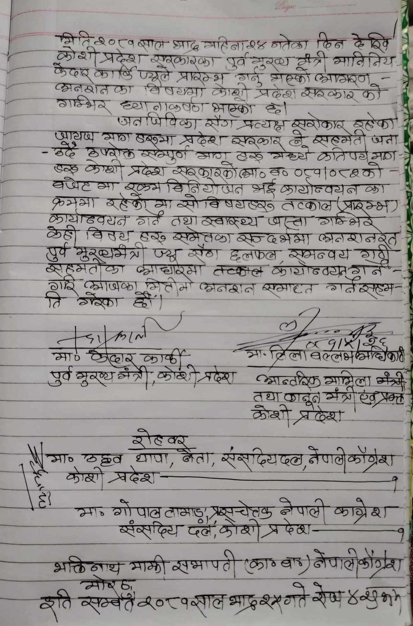 मिति २०८१ साल भाद्र महिना २४ गतेका दिन देखि
कोशी प्रदेश सरकारका पूर्व मुख्य मंत्री माननिय
केदार कार्कि ज्यूले प्रारम्भ गर्नु भएको आमरण -
अनशनका विषयमा कोशी प्रदेश सरकार को
गम्भिर ध्यानाकर्षण भएको छ।
जनजिविका सँग प्रत्यक्ष सरोकार रहेको
जायज माग हरुमा प्रदेश सरकार ले सहमती जना
- उदै उपरोक्त सम्पूर्ण माग हरु मध्ये कतिपय माग
हरु कोशी प्रदेश सरकारको आ.व. ०८१/०८२ को -
बजेट मा रकम विनियोजन भई कार्यान्वयन का
क्रममा रहेको मा सो विषयहरु तत्काल (प्रारम्भ)
कार्यान्वयन गर्ने तथा स्वास्थ्य जस्ता गम्भिर
केही विषय हरु समेतका सन्दर्भमा अनशनरत
पूर्व मुख्यमंत्री ज्यू सँग छलफल समन्वय गरी
सहमतीका आधारमा तत्काल कार्यान्वयन गर्ने
गरि आजका मितीमा अनशन समाप्त गर्न सहम-
ति गरेका छौं।
मा. केदार कार्की
पूर्व मुख्य मंत्री, कोशी प्रदेश
मा. लिला बल्लभ अधिकारी
आन्तरिक मामिला मंत्री
तथा कानून मंत्री एवं प्रवक्ता
कोशी प्रदेश
रोहवर
मा० उद्धव थापा, नेता, संसदिय दल, नेपाली काँग्रेस
कोशी प्रदेश १
मा. गोपाल तामाङ, प्रमुख सचेतक नेपाली काग्रेस
संसदिय दल, कोशी प्रदेश १
भक्तिनाथ माझी सभापती (का० बा०) नेपाली काँग्रेस
मोरङ
इति सम्वत २०८१ साल भाद्र २५ गते रोज ४ शुभम्